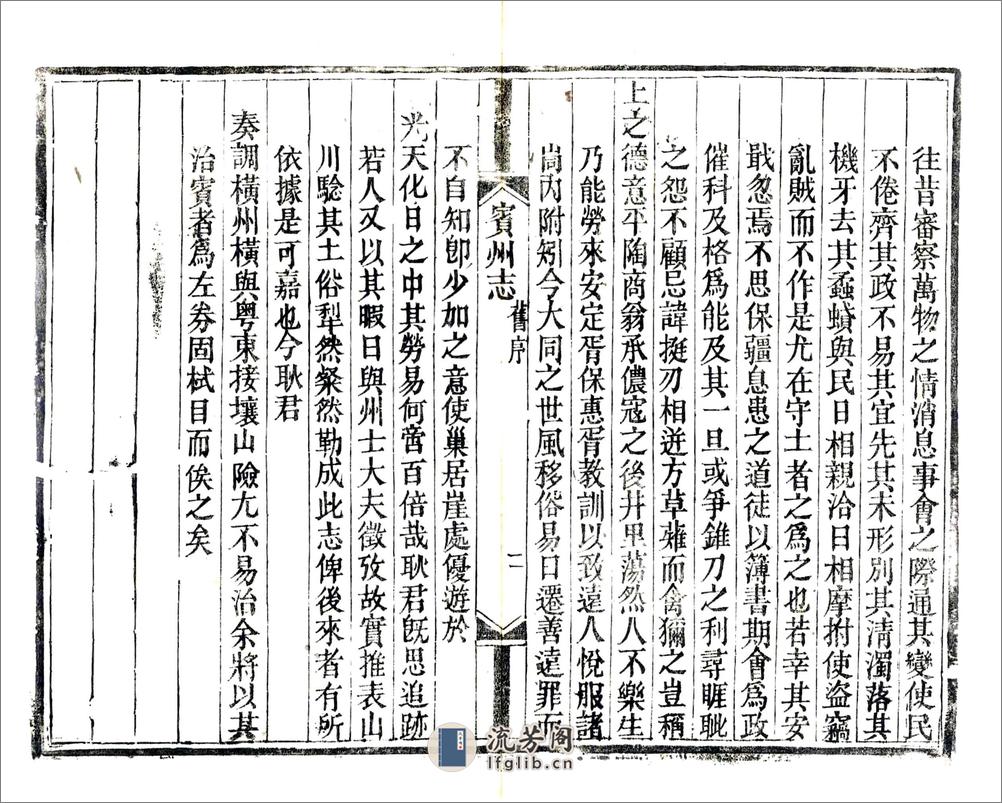 往昔審察萬物之情消息事會之際通其變使民
不倦齊其政不易其宜先其未形別其淸濁落其
機牙去其蟊蠈與民日相親洽日相摩拊使盜竊
亂賊而不作是尤在守土者之爲之也若幸其安
戢忽焉不思保疆息患之道徒以簿書期會爲政
催科及格爲能及其一旦或爭錐刀之利尋睚眦
之怨不顧忌諱挺刃相逬方草薙而禽獮之豈稱
上之德意乎陶商翁承儂寇之後井里蕩然人不樂生
乃能勞來安定胥保惠胥教訓以致遠人悅服諸
峝內附矧今大同之世風移俗易日遷善遠罪而
賓州志
舊序
二
不自知卽少加之意使巢居崖處優遊於
光天化日之中其勞易何啻百倍哉耿君旣思追跡
若人又以其暇日與州士大夫徵攷故實推表山
川騐其土俗犁然粲然勒成此志俾後來者有所
依據是可嘉也今耿君
奏調橫州橫與粤東接壤山險尢不易治余將以其
治賓者爲左劵固栻目而俟之矣
流芳阁
lfglib.cn